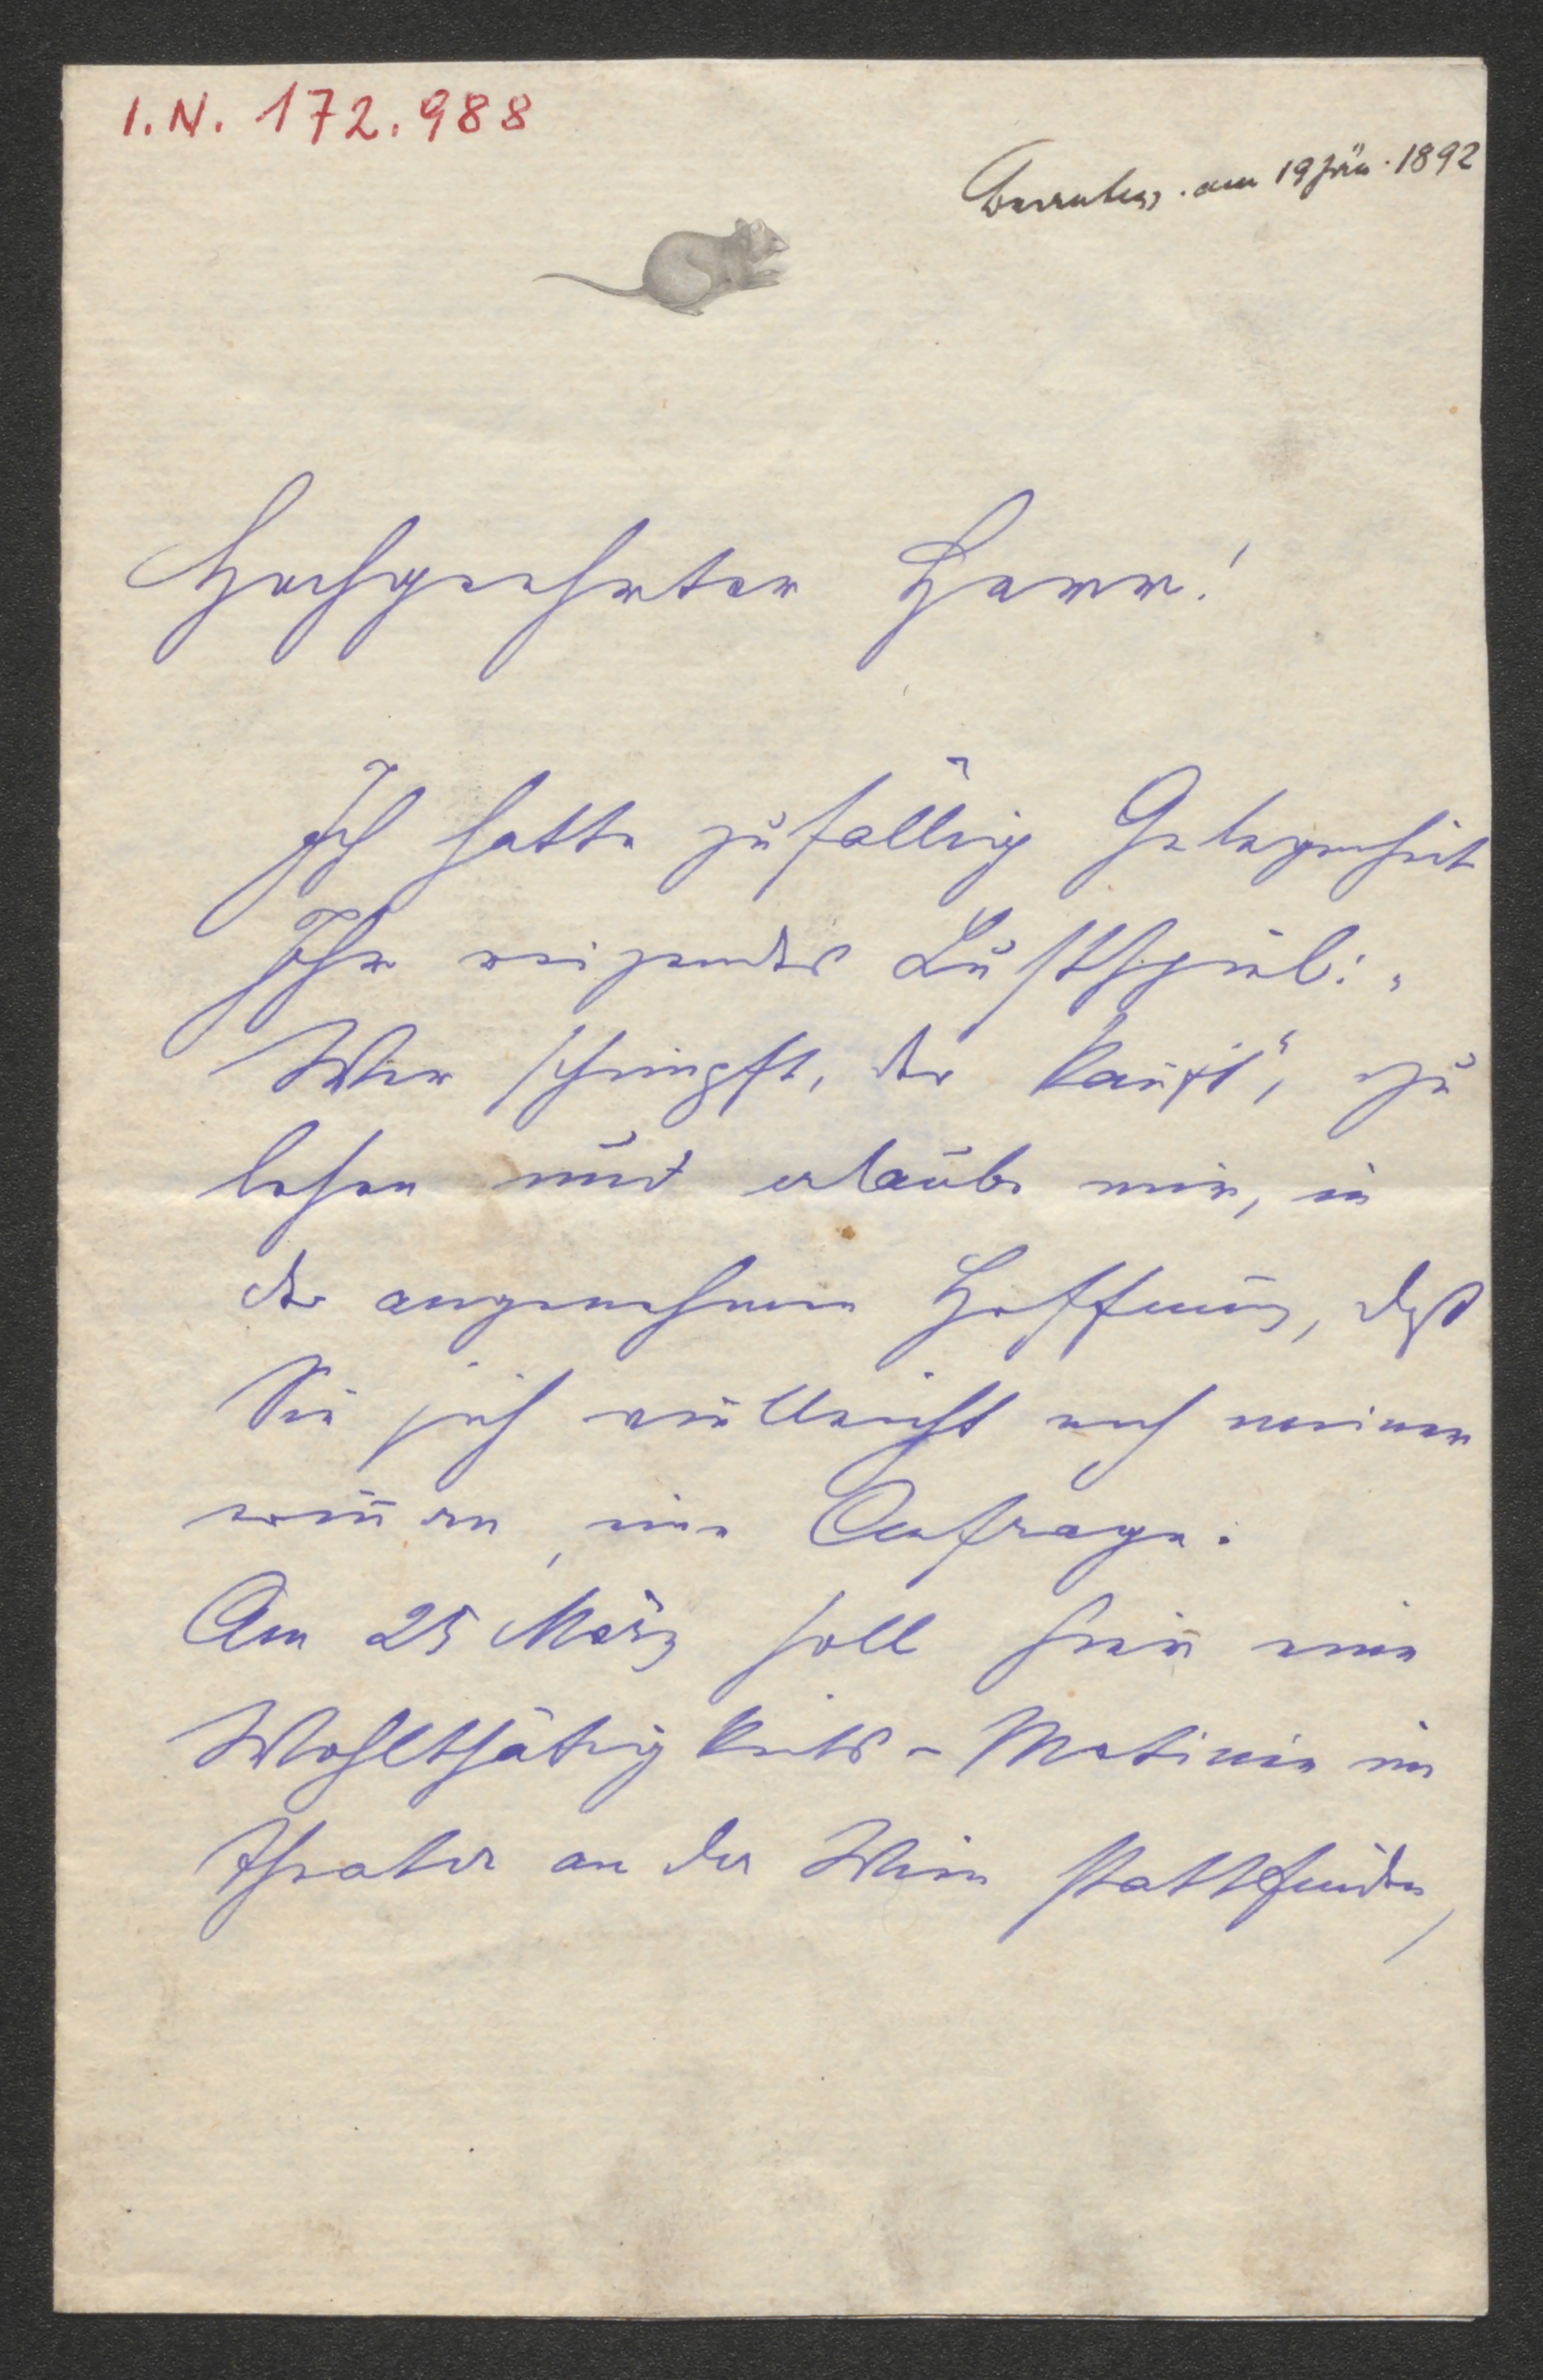 I.N. 172.988
am 19 Jän. 1892
Hochgeehrter Herr!
Ich hatte zufällig Gelegenheit
Ihr reizendes Lustspiel: „
Wer schimpft, der kauft“, zu
lesen und erlaube mir, in
der angenehmen Hoffnung, daß
Sie sich vielleicht noch meiner
erin̄ern, eine Anfrage.
Am 25 März soll hier eine
Wohlthätigkeits-Matinée im
Theater an der Wien stattfinden,